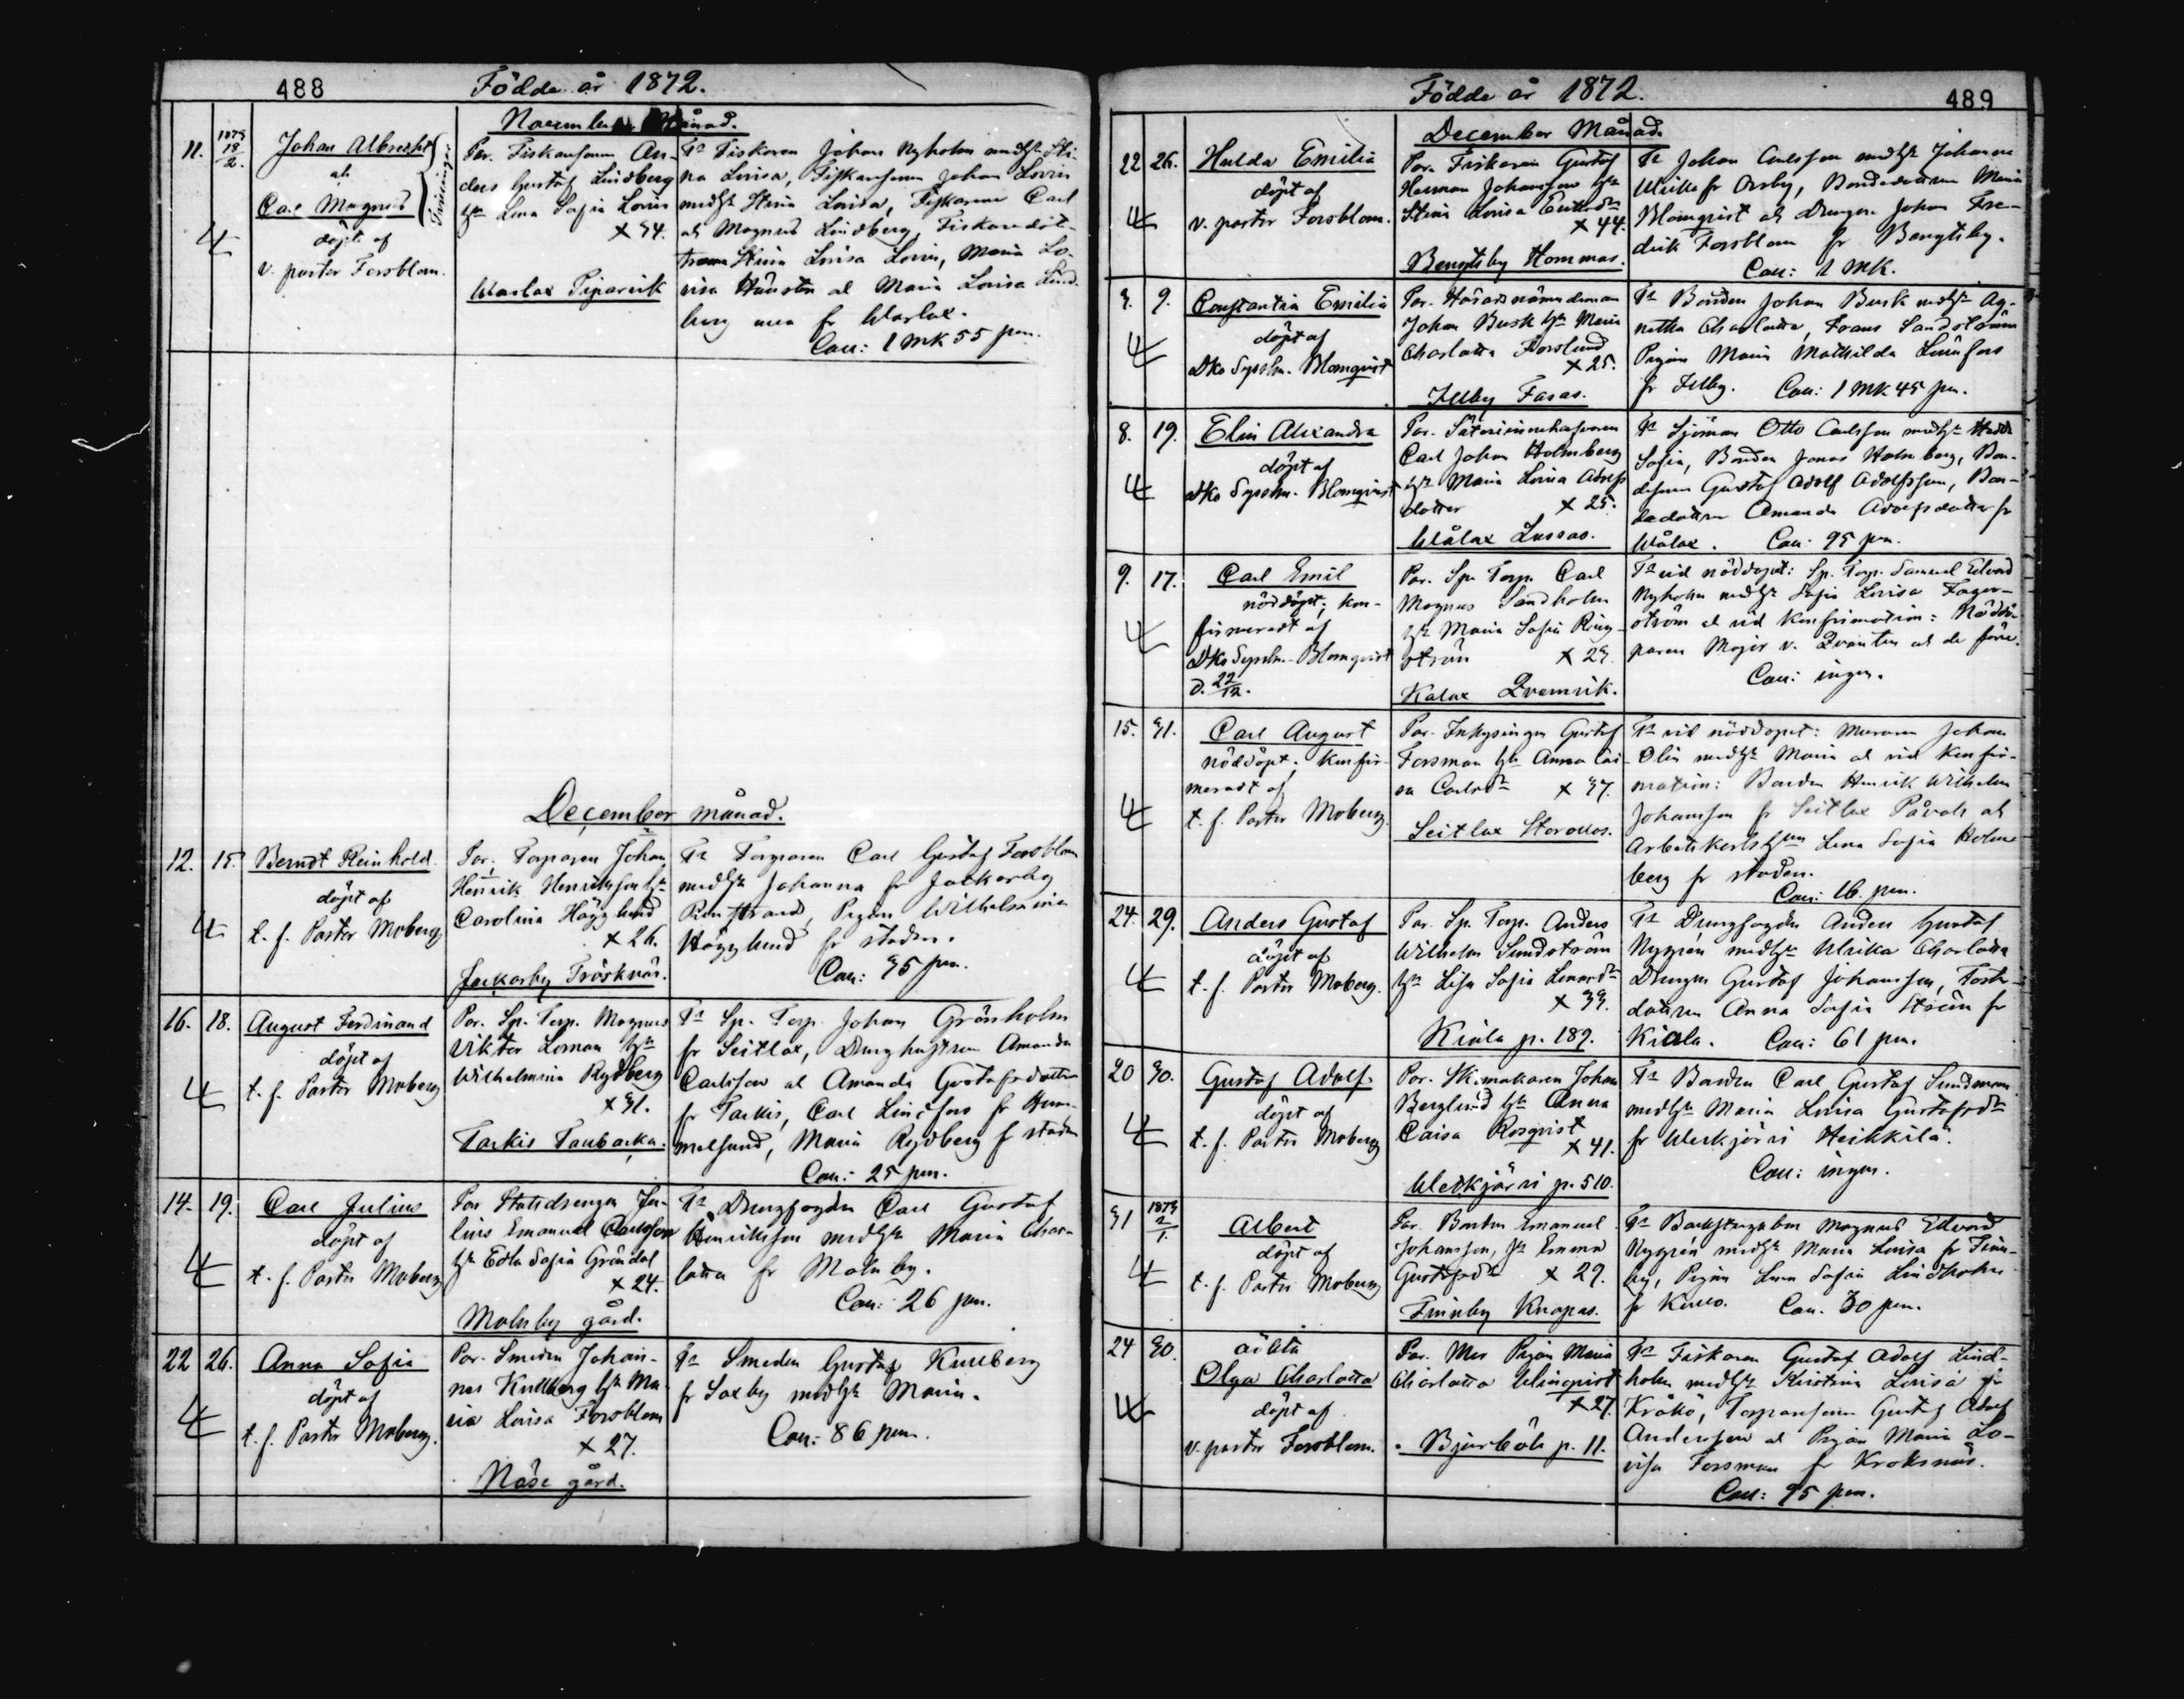 488
Födde år 1872.
November Månad.
11.
1873
18
2.
Johan Albrecht
ah
Carl Magnus
Tvillingar
döpt af
v. pastor Forsblom.
Par. Fiskaresonen An-
ders Gustaf Lindberg
hu Lena Sofia Lovin
x 34.
Warlax Piparvik
Tr Fiskaren Johan Nyholm medhu Sti-
na Lovisa, Fiskaresonen Johan Lovin
medhu Stina Lovisa, Fiskarene Carl
ah Magnus Lindberg, Fiskaredöt-
trarna Stina Lovisa Lovin, Maria Lo-
visa al Maria Lovisa Lind-
berg fr Warlax.
Coll: 1 mk 55 pen.
December månad.
12.
15.
Berndt Reinhold
döpt af
t. f. Pastor Moberg
Par. Torparen Johan
Henrik Henriksson hu
Carolina Högglund
x 26.
Jackarby Träsknäs.
Tr Torparen Carl Gustaf Forsblom
medhu Johanna fr Jackarby
Pigan Wilhelmina
Högglund fr staden.
Coll: 35 pen.
16.
18.
August Ferdinand
döpt af
t. f. Pastor Moberg
Par. Sp. Torp. Magnus
Viktor Loman hu
Wilhelmina Rydberg
x 31.
Tarkis Tanbacka.
Tr Sp. Torp. Johan Grönholm
fr Seitlax, Drenghustrun Amanda
Carlsson al Amanda Gustafsdotter
fr Tarkis, Carl Lindfors fr Hum-
melsund, Maria Rydberg fr staden
Coll: 25 pen.
14.
19.
Carl Julius
döpt af
t. f. Pastor Moberg
Par. Statdrengen Ju-
lius Emanuel Carlsson
hu Edla Sofia Gröndal
x 24.
Molnby gård.
Tr Drengfogden Carl Gustaf
Henriksson medhu Maria Char-
lotta fr Molnby.
Coll: 26 pen.
22
26.
Anna Sofia
döpt af
t. f. Pastor Moberg.
Par. Smeden Johan-
nes Kullberg hu Ma-
ria Lovisa Forsblom
x 27.
Näse gård.
Tr Smeden Gustaf Kullberg
fr Saxby medhu Maria.
Coll: 86 pen.
Födde år 1872.
489
December Månad.
22
26.
Hulda Emilia
döpt af
v. pastor Forsblom.
Par. Fiskaren Gustaf
Herman Johansson hu
Stina Lovisa Eriksdr
x 44.
Bengtsby Hommas.
Tr Johan Carlsson medhu Johanna
Ulrika fr Orrby, Bondedottren Maria
Blomqvist ah Drengen Johan Fre-
drik Forsblom fr Bengtsby.
Coll: 1 mk.
3.
9.
Constantia Emilia
döpt af
Dko Sysslm. Blomqvist
Par. Häradsnämndeman
Johan Busk hu Maria
Charlotta Forslund
x 25.
Illby Fasas.
Tr Bonden Johan Busk medhu Ag-
netha Charlotta, Frans Sandström
Pigan Maria Mathilda Lindfors
fr Illby. Coll: 1 mk 45 pen.
8.
19.
Elin Alexandra
döpt af
Dko Sysslm. Blomqvist
Par. Säteriinnehafvaren
Carl Johan Holmberg
hu Maria Lovisa Adolfs
dotter x 25.
Wålax Lussas.
Tr Sjöman Otto Carlsson medhu Hedda
Sofia, Bonden Jonas Holmberg, Bon-
desonen Gustaf Adolf Adolfsson, Bon-
dedottren Amanda Adolfsdotter fr
Wålax. Coll: 95 pen.
9.
17.
Carl Emil
nöddöpt; kon-
firmeradt af
Dko Sysslm. Blomqvist
d. 22/12.
Par. Sp. Torp. Carl
Magnus Sandholm
hu Maria Sofia Ring-
ström x 29.
Kalax Qvarnvik.
Tr vid nöddopet: Sp. Torp. Samuel Edvard
Nyholm medhu Sofia Lovisa Fager-
ström al vid konfirmation: Nöddö-
paren Major v. Qvanten ah de förre.
Coll: ingen.
15.
31.
Carl August
nöddöpt; konfir-
meradt af
t. f. Pastor Moberg.
Par. Inhysingen Gustaf
Forsman hu Anna Cai-
sa Carlsdr x 37.
Seitlax Storoxos.
Tr vid nöddopet: Muraren Johan
Olin medhu Maria al vid konfir-
mation: Bonden Henrik Wilhelm
Johansson fr Seitlax Påvals ah
Arbetskarlshun Lena Sofia Holm-
berg fr staden.
Coll: 16 pen.
24.
29.
Anders Gustaf
döpt af
t. f. Pastor Moberg.
Par. Sp. Torp. Anders
Wilhelm Sundström
hu Lisa Sofia Lenardr
x 33.
Kiala p. 189.
Tr Drengfogden Anders Gustaf
Nygrén medhu Ulrika Charlotta
Drengen Gustaf Johansson,
dottren Anna Sofia Ström fr
Kiala. Coll: 61 pen.
20
30.
Gustaf Adolf
döpt af
t. f. Pastor Moberg
Par. Skomakaren Johan
Berglund hu Anna
Caisa Rosqvist
x 41.
Weckjärvi p. 510.
Tr Bonden Carl Gustaf Sundman
medhu Maria Lovisa Gustafsdr
fr Weckjärvi Heikkilä.
Coll: ingen.
31
1873
2
1.
Albert
döpt af
t. f. Pastor Moberg
Par. Bonden Emanuel
Johansson, hu Emma
Gustafsdr x 29.
Finnby Knapas.
Tr Backstugubon Magnus Edvard
Nygrén medhu Maria Lovisa fr Finn-
by, Pigan Lena Sofia Lindholm
fr Kullo. Coll. 30 pen.
24
30.
oäkta
Olga Charlotta
döpt af
v. pastor Forsblom.
Par. Mor Pigan Maria
Charlotta Winqvist
x 27.
Bjurböle p. 11.
Tr Fiskaren Gustaf Adolf Lind-
holm medhu Kristina Lovisa fr
Kråkö, Torparesonen Gustaf Adolf
Andersson al Pigan Maria Lo-
visa Forsman fr Kroksnäs.
Coll: 95 pen.